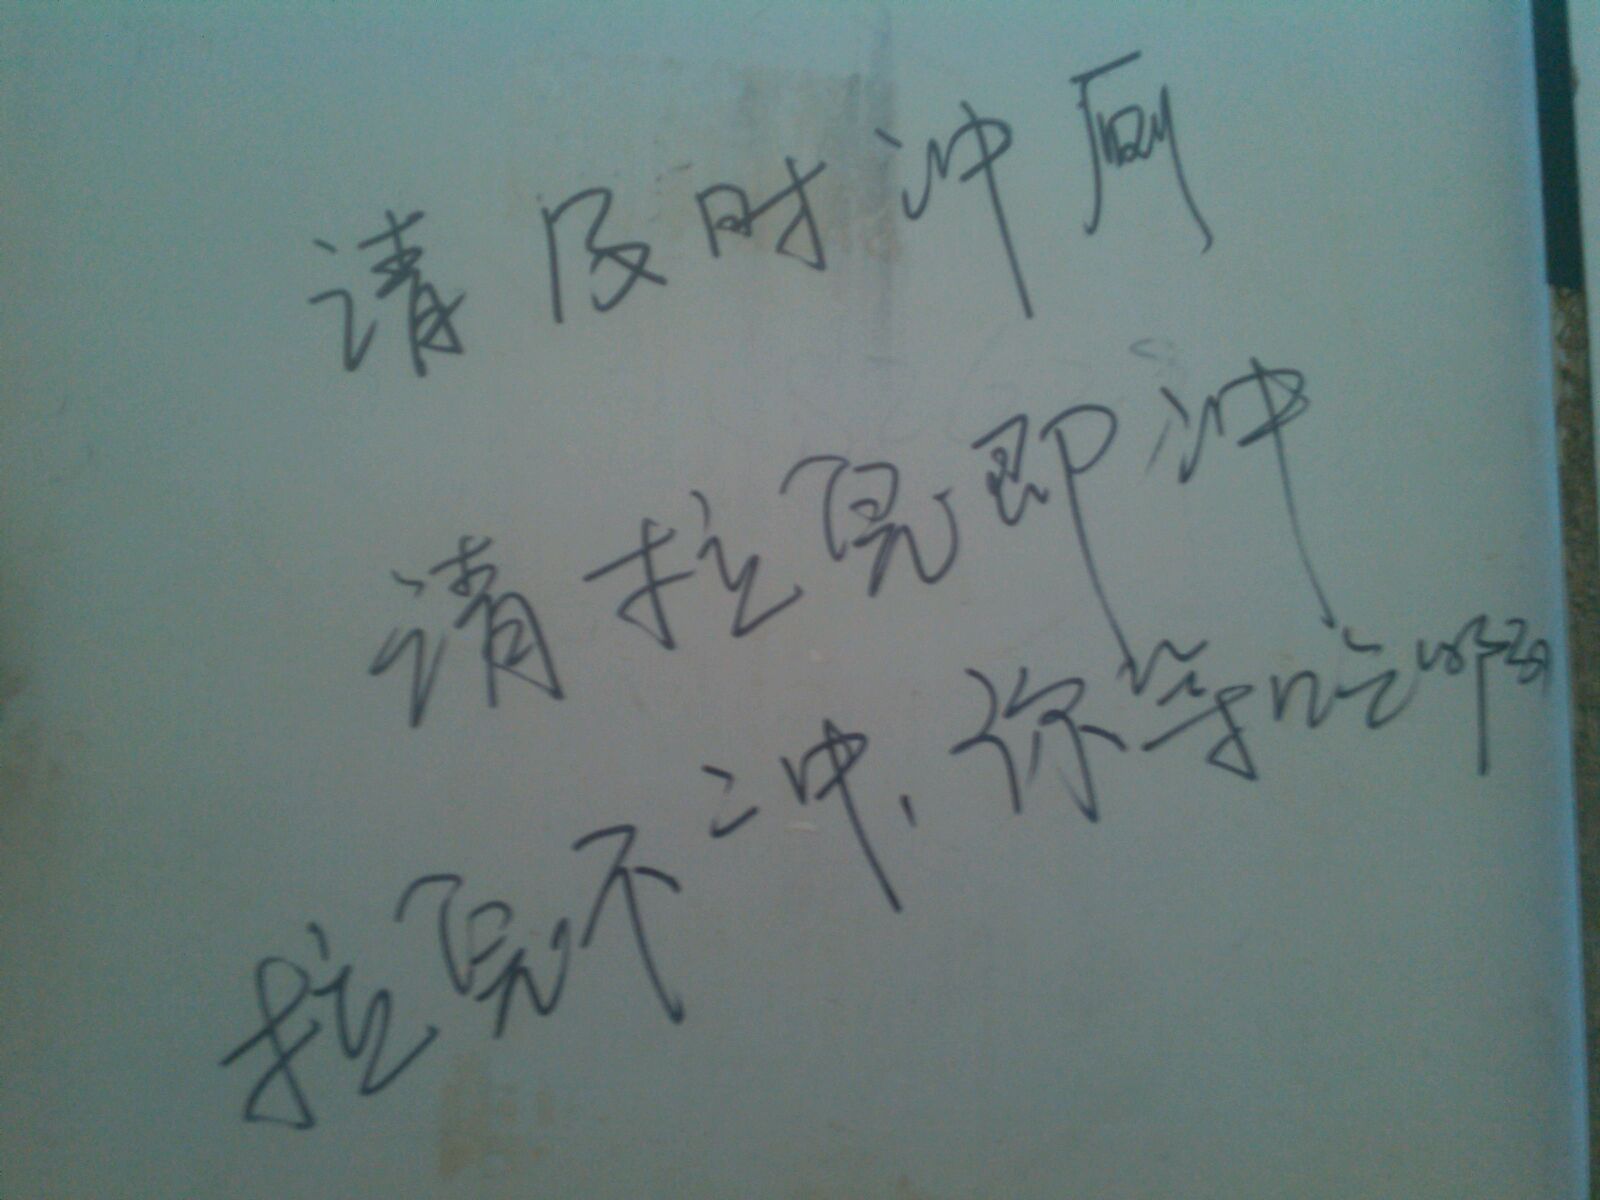 请及时冲厕
请拉完即冲
拉完不冲，你等吃